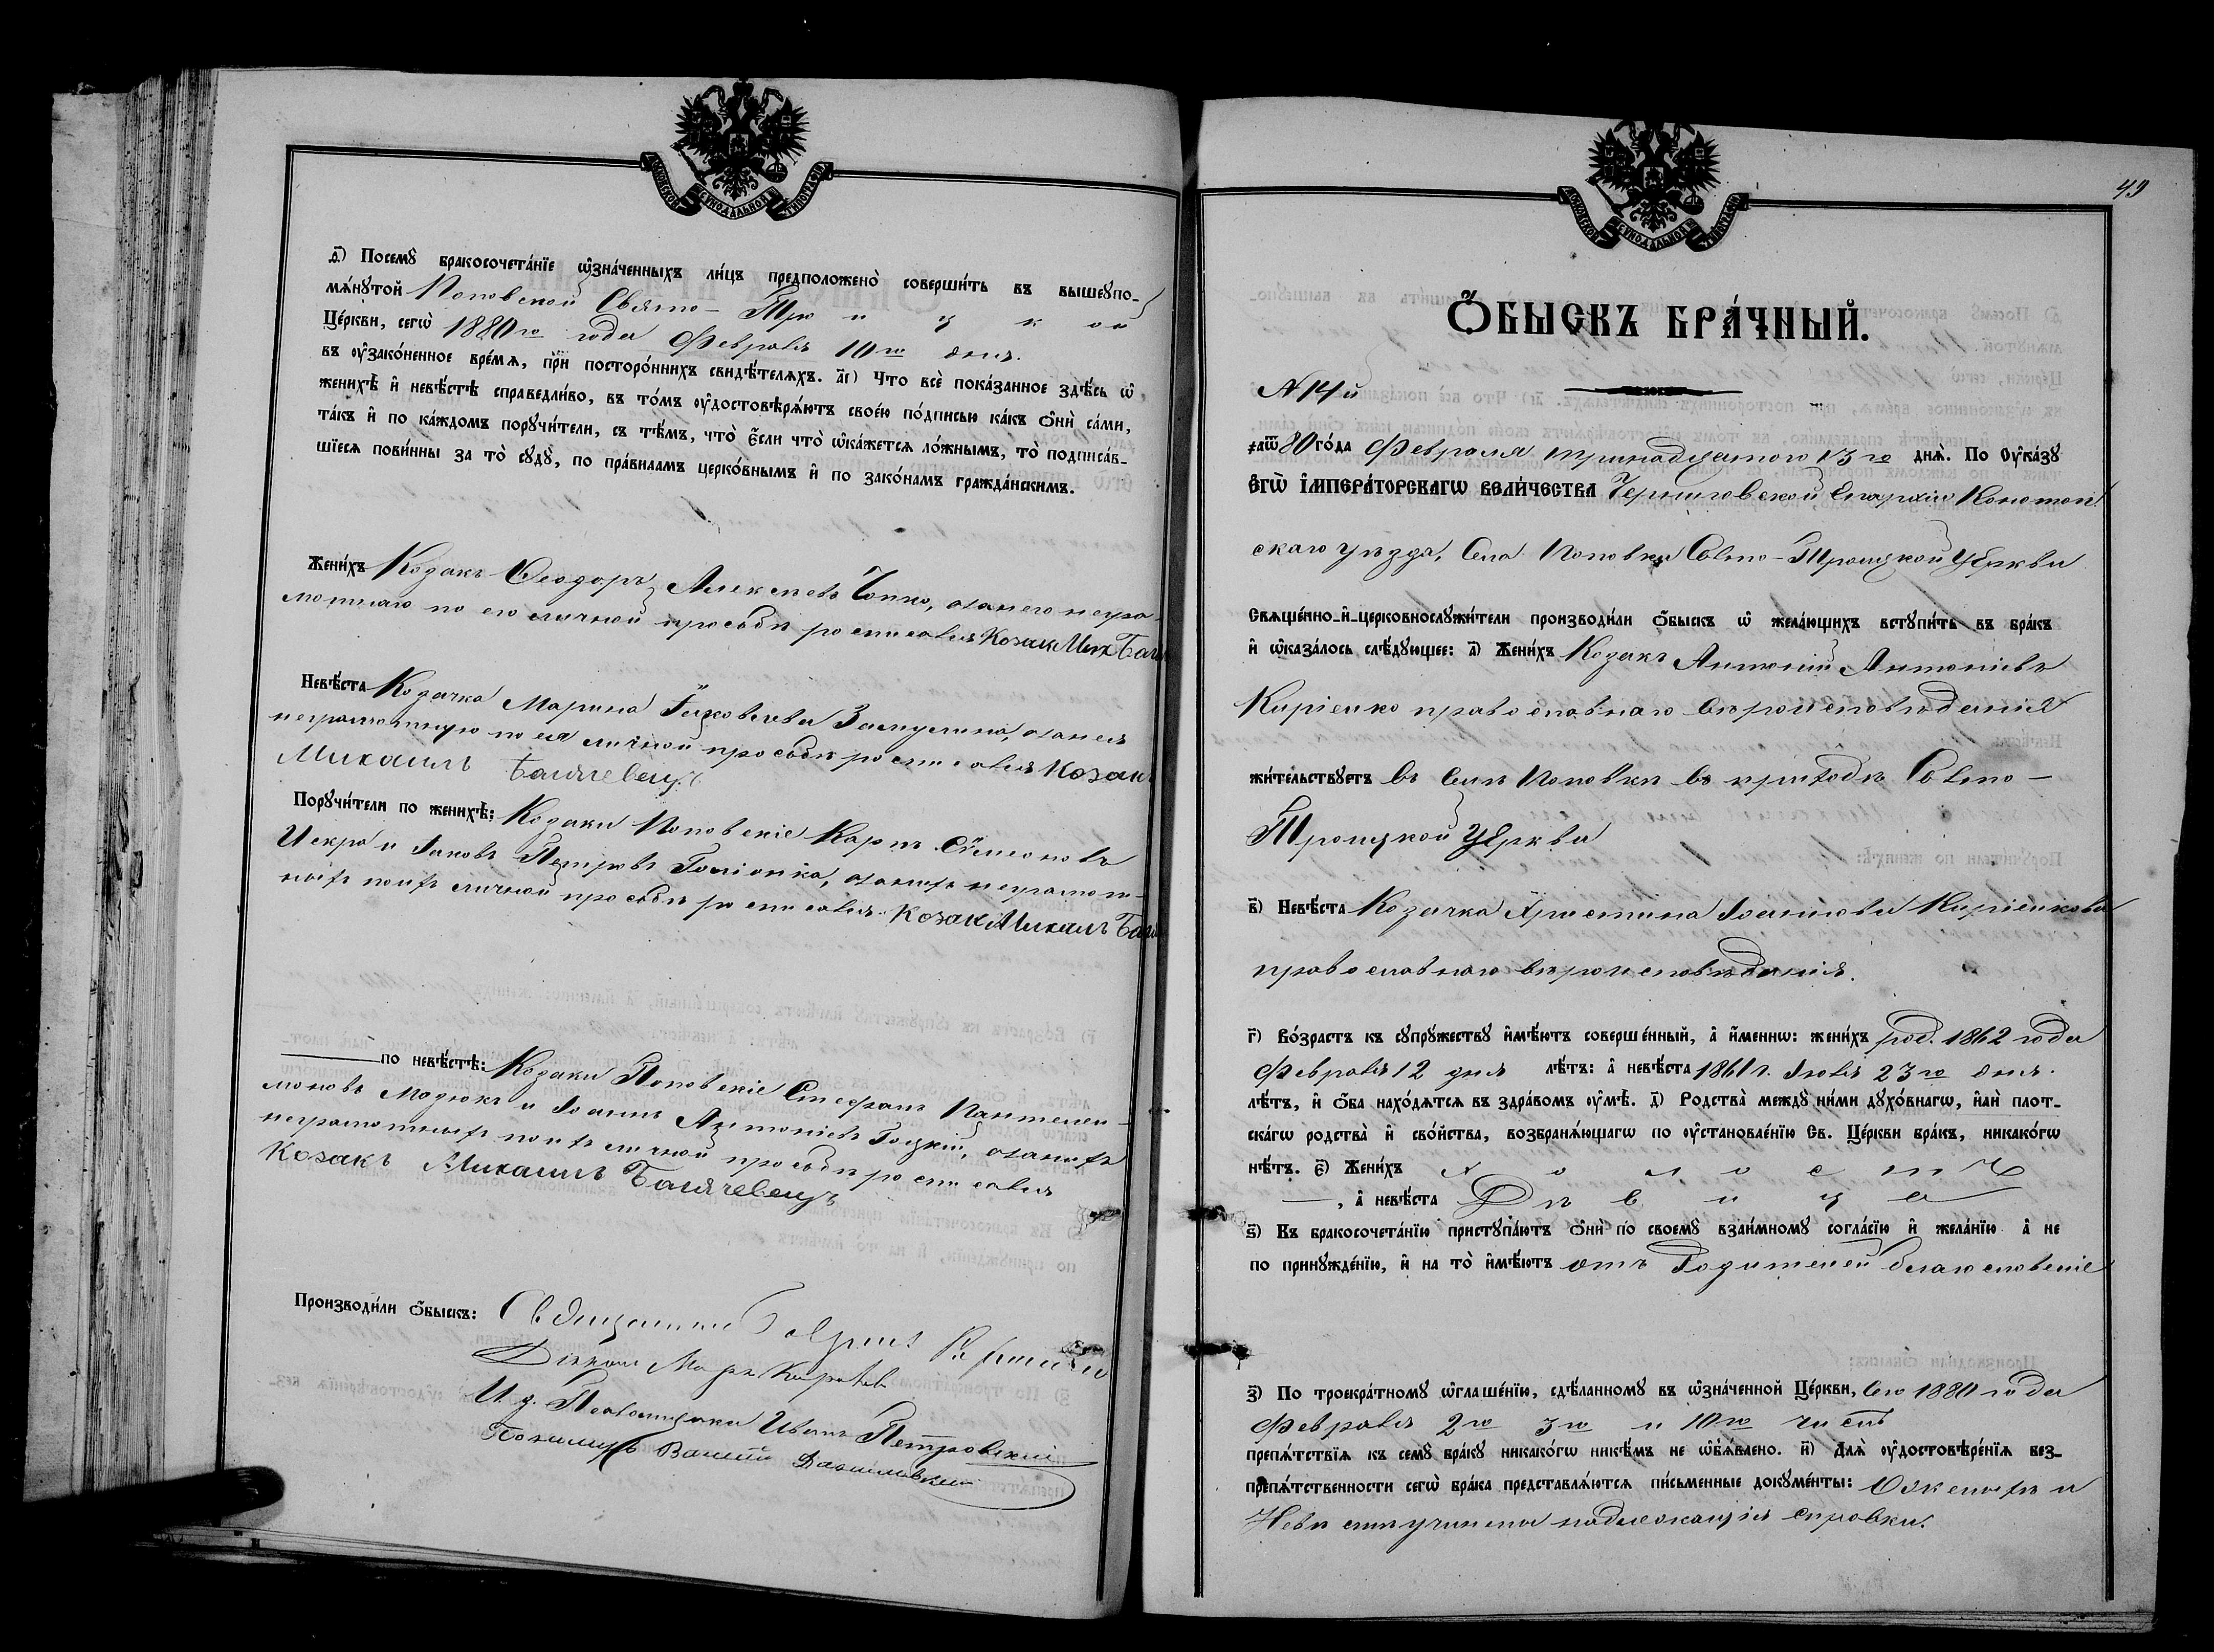 МОСКОВСКОЙ СѴНОДАЛЬНОЙ ТИПОГРАФІИ
і҃) Посемꙋ̀ бракосочета́нїе ѡ҆зна́ченныхъ ли́цъ предположено̀ соверши́ть въ вышеꙋпо-
мѧ́нꙋтой Поповской Свято-Троицкой
Це́ркви, сегѡ̀ 1880го года Февраля 10го дня.
въ ᲂу҆зако́ненное вре́мѧ, при посторо́ннихъ свидѣ́телѧхъ. а҃і) Что всѐ пока́занное здѣ́сь ѡ҆
женихѣ̀ и҆ невѣ́стѣ справедли́во, въ то́мъ ᲂу҆достовѣрѧ́ютъ свое́ю по́дписью ка́къ ѻ҆нѝ са́ми,
та́къ и҆ по ка́ждомъ порꙋчи́тели, съ тѣ́мъ, что̀ є҆́сли что̀ ѡ҆ка́жетсѧ ло́жнымъ, то̀ подписа́в-
шїесѧ пови́нны за то̀ сꙋдꙋ̀, по пра́виламъ церко́внымъ и҆ по зако́намъ гражда́нскимъ.
Жени́хъ Козакъ Ѳеодоръ Алексѣевъ Чопко, а за него негра-
мотнаго по его личной просьбѣ росписался Козакъ Мих Баг
Невѣ́ста Козачка Марина Яковлева, а за нея
неграмотную по ея личной просьбѣ росписался Козакъ
Михаилъ
Порꙋчи́тели по женихѣ̀: Козаки Поповскіе Карпъ Сѵмеоновъ
Искра и Іаковъ Петровъ, а за нихъ неграмот-
ныхъ по ихъ личной просьбѣ росписался Козакъ Михаилъ
по невѣ́стѣ: Козаки Поповскіе Стефанъ Пантелеи-
моновъ Мазюкъ и Іоаннъ Антоніевъ Гоцкій, а за нихъ
неграмотныхъ по ихъ личной просьбѣ росписался
Козакъ Михаилъ
Производи́ли ѻ҆́быскъ: Священникъ
Діаконъ
И. д. Псаломщика Иванъ Петровскій
Пономарь
49
МОСКОВСКОЙ СѴНОДАЛЬНОЙ ТИПОГРАФІИ
Ѻ҆́БЫСКЪ БРА́ЧНЫЙ.
№ 14й
҂аѿ80 го́да Февраля тринадцатого 13го днѧ̀. По Оу҆ка́зꙋ
Є҆ГѠ̀ І҆МПЕРА́ТОРСКАГѠ ВЕЛИ́ЧЕСТВА Черниговской Епархіи Конотоп-
скаго уѣзда, Села Поповки Свято-Троицкой Церкви
Свѧще́нно-и҆-церковнослꙋжи́тели производи́ли ѻ҆́быскъ ѡ҆ жела́ющихъ встꙋпи́ть въ бра́къ
и҆ ѡ҆каза́лось слѣ́дꙋющее: а҃) Жени́хъ Козакъ Антоній Антоніевъ
Киріенко православнаго вѣроисповѣданія
жи́тельствꙋетъ въ Селѣ Поповкѣ въ приходѣ Свято-
Троицкой Церкви
в҃) Невѣ́ста Козачка Христина Іоаннова Киріенкова
православнаго вѣроисповѣданія.
г҃) Во́зрастъ къ сꙋпрꙋ́жествꙋ и҆мѣ́ютъ соверше́нный, а҆ и҆́меннѡ: жени́хъ род. 1862 года
Февраля 12 дня лѣ́тъ: а҆ невѣ́ста 1861 г. Іюля 23го дня.
лѣ́тъ, и҆ ѻ҆́ба нахо́дѧтсѧ въ здра́вомъ ᲂу҆мѣ̀. д҃) Родства̀ междꙋ ни́ми дꙋхо́внагѡ, и҆лѝ плот-
ска́гѡ родства̀ и҆ сво́йства, возбранѧ́ющагѡ по ᲂу҆становле́нїю Св. Це́ркви бра́къ, никако́гѡ
нѣ́тъ. є҃) Жени́хъ холостъ
, а҆ невѣ́ста Дѣвица
ѕ҃) Къ бракосочета́нїю пристꙋпа́ютъ ѻ҆нѝ по своемꙋ̀ взаи́мномꙋ согла́сїю и҆ жела́нїю а҆ не
по принꙋжде́нїю, и҆ на то̀ и҆мѣ́ютъ отъ Родителей благословеніе
з҃) По троекра́тномꙋ ѡ҆глаше́нїю, сдѣ́ланномꙋ въ ѡ҆зна́ченной Це́ркви, сего 1880 года
Февраля 2го 3го и 10го числъ
препѧ́тствїѧ къ семꙋ̀ бра́кꙋ никако́гѡ никѣ́мъ не ѡ҆б̾ѧ́влено. и҃) Длѧ̀ ᲂу҆достовѣре́нїѧ без-
препѧ́тственности сегѡ̀ бра́ка представлѧ́ютсѧ пи́сьменные докꙋме́нты: О женихѣ и
Невѣстѣ учинены надлежащія справки.